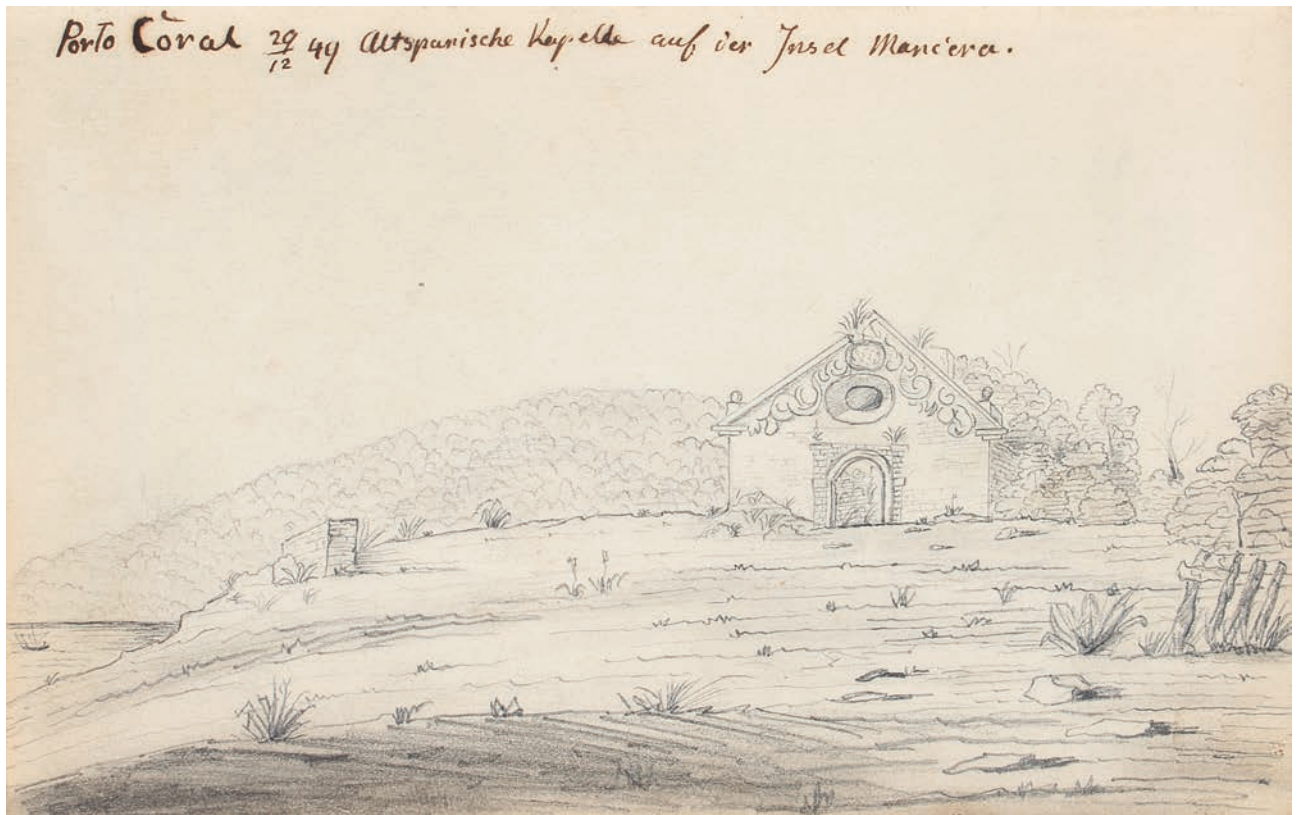 Porto Coral 29/12 49 Altspanische Kapelle auf der Insel Mancera.